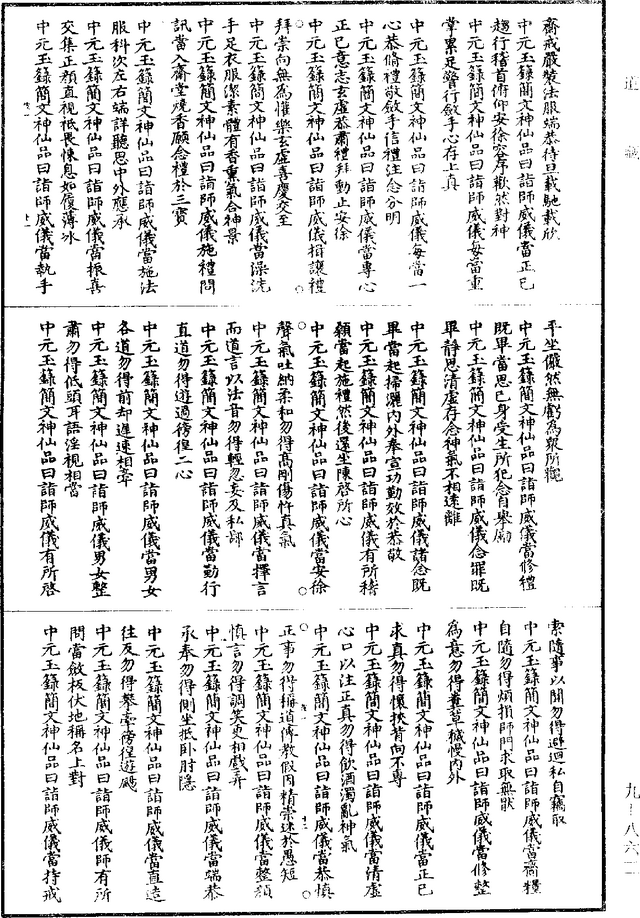 道藏
齋戒嚴裝法服端恭待旦載馳載欣
中元玉籙簡文神仙品曰諸師威儀當正已
趨行稽首俯仰安徐容序歡然對神
中元玉籙簡文神仙品曰諸師威儀每當重
掌累足詧行斂手心存上真
中元玉籙簡文神仙品曰諸師威儀每當一
心恭脩禮敬斂手信禮注念分明
中元玉籙簡文神仙品曰諸師威儀當專心
正已意志玄虛恭肅禮拜動止安徐
中元玉籙簡文神仙品曰諸師威儀揖讓禮
拜崇向無為惟樂玄虛喜慶交至
中元玉籙簡文神仙品曰諸師威儀當澡洗
手足衣服潔素體有香熏氣合神景
中元玉籙簡文神仙品曰諸師威儀施禮問
訊當入齋堂燒香願念禮於三寶
中元玉籙簡文神仙品曰諸師威儀當施法
服科次左右端詳聽思中外應承
中元玉籙簡文神仙品曰諸師威儀當振喜
交集正顏直視祗畏悚息如履薄冰
中元玉籙簡文神仙品曰諸師威儀當執手
平坐儼然無虧為眾所觀
中元玉籙簡文神仙品曰諸師威儀當修禮
既畢當思己身受生所犯念自舉勵
中元玉籙簡文神仙品曰諸師威儀念罪既
畢靜思清虛存念神氣不相遠離
中元玉籙簡文神仙品曰諸師威儀諸念既
畢當起掃灑內外奉宣功勤效於恭敬
中元玉籙簡文神仙品曰諸師威儀有所稽
顙當起施禮然後還坐陳啓所心
中元玉籙簡文神仙品曰諸師威儀當安徐
聲氣吐納柔和勿得高剛傷忤真氣
中元玉籙簡文神仙品曰諸師威儀當擇言
而道言以法音勿得輕忽妄及私鄙
中元玉籙簡文神仙品曰諸師威儀當勤行
直道勿得遊適徬徨二心
中元玉籙簡文神仙品曰諸師威儀當男女
各道勿得前却遲速相牽
中元玉籙簡文神仙品曰諸師威儀男女整
肅勿得低頭耳語淫視相當
中元玉籙簡文神仙品曰諸師威儀有所啓
索隨事以聞勿得避迴私自竊取
中元玉籙簡文神仙品曰諸師威儀當齎糧
自隨勿得煩損師門求取無猒
中元玉籙簡文神仙品曰諸師威儀當修整
為意勿得葷草穢慢內外
中元玉籙簡文神仙品曰諸師威儀當正已
求真勿得懷挾背向不專
中元玉籙簡文神仙品曰諸師威儀當清虛
心口以注正真勿得飲酒濁亂神氣
中元玉籙簡文神仙品曰諸師威儀當恭慎
正事勿得稱道傳教假內精崇迷於愚短
中元玉籙簡文神仙品曰諸師威儀當整顏
慎言勿得調笑更相戲弄
中元玉籙簡文神仙品曰諸師威儀當端恭
承奉勿得側坐抵臥肘隱
中元玉籙簡文神仙品曰諸師威儀當直造
往反勿得搴牽徬徨遊颺
中元玉籙簡文神仙品曰諸師威儀師有所
問當斂板伏地稱名上對
中元玉籙簡文神仙品曰諸師威儀當持戒
九—八六二